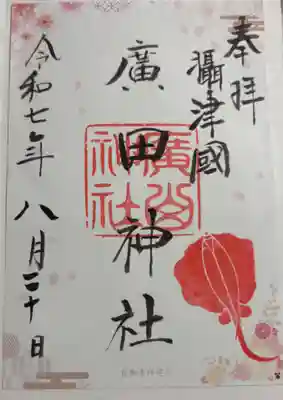 奉拝
攝津國
廣田神社
廣田神社
令和七年八月二十日